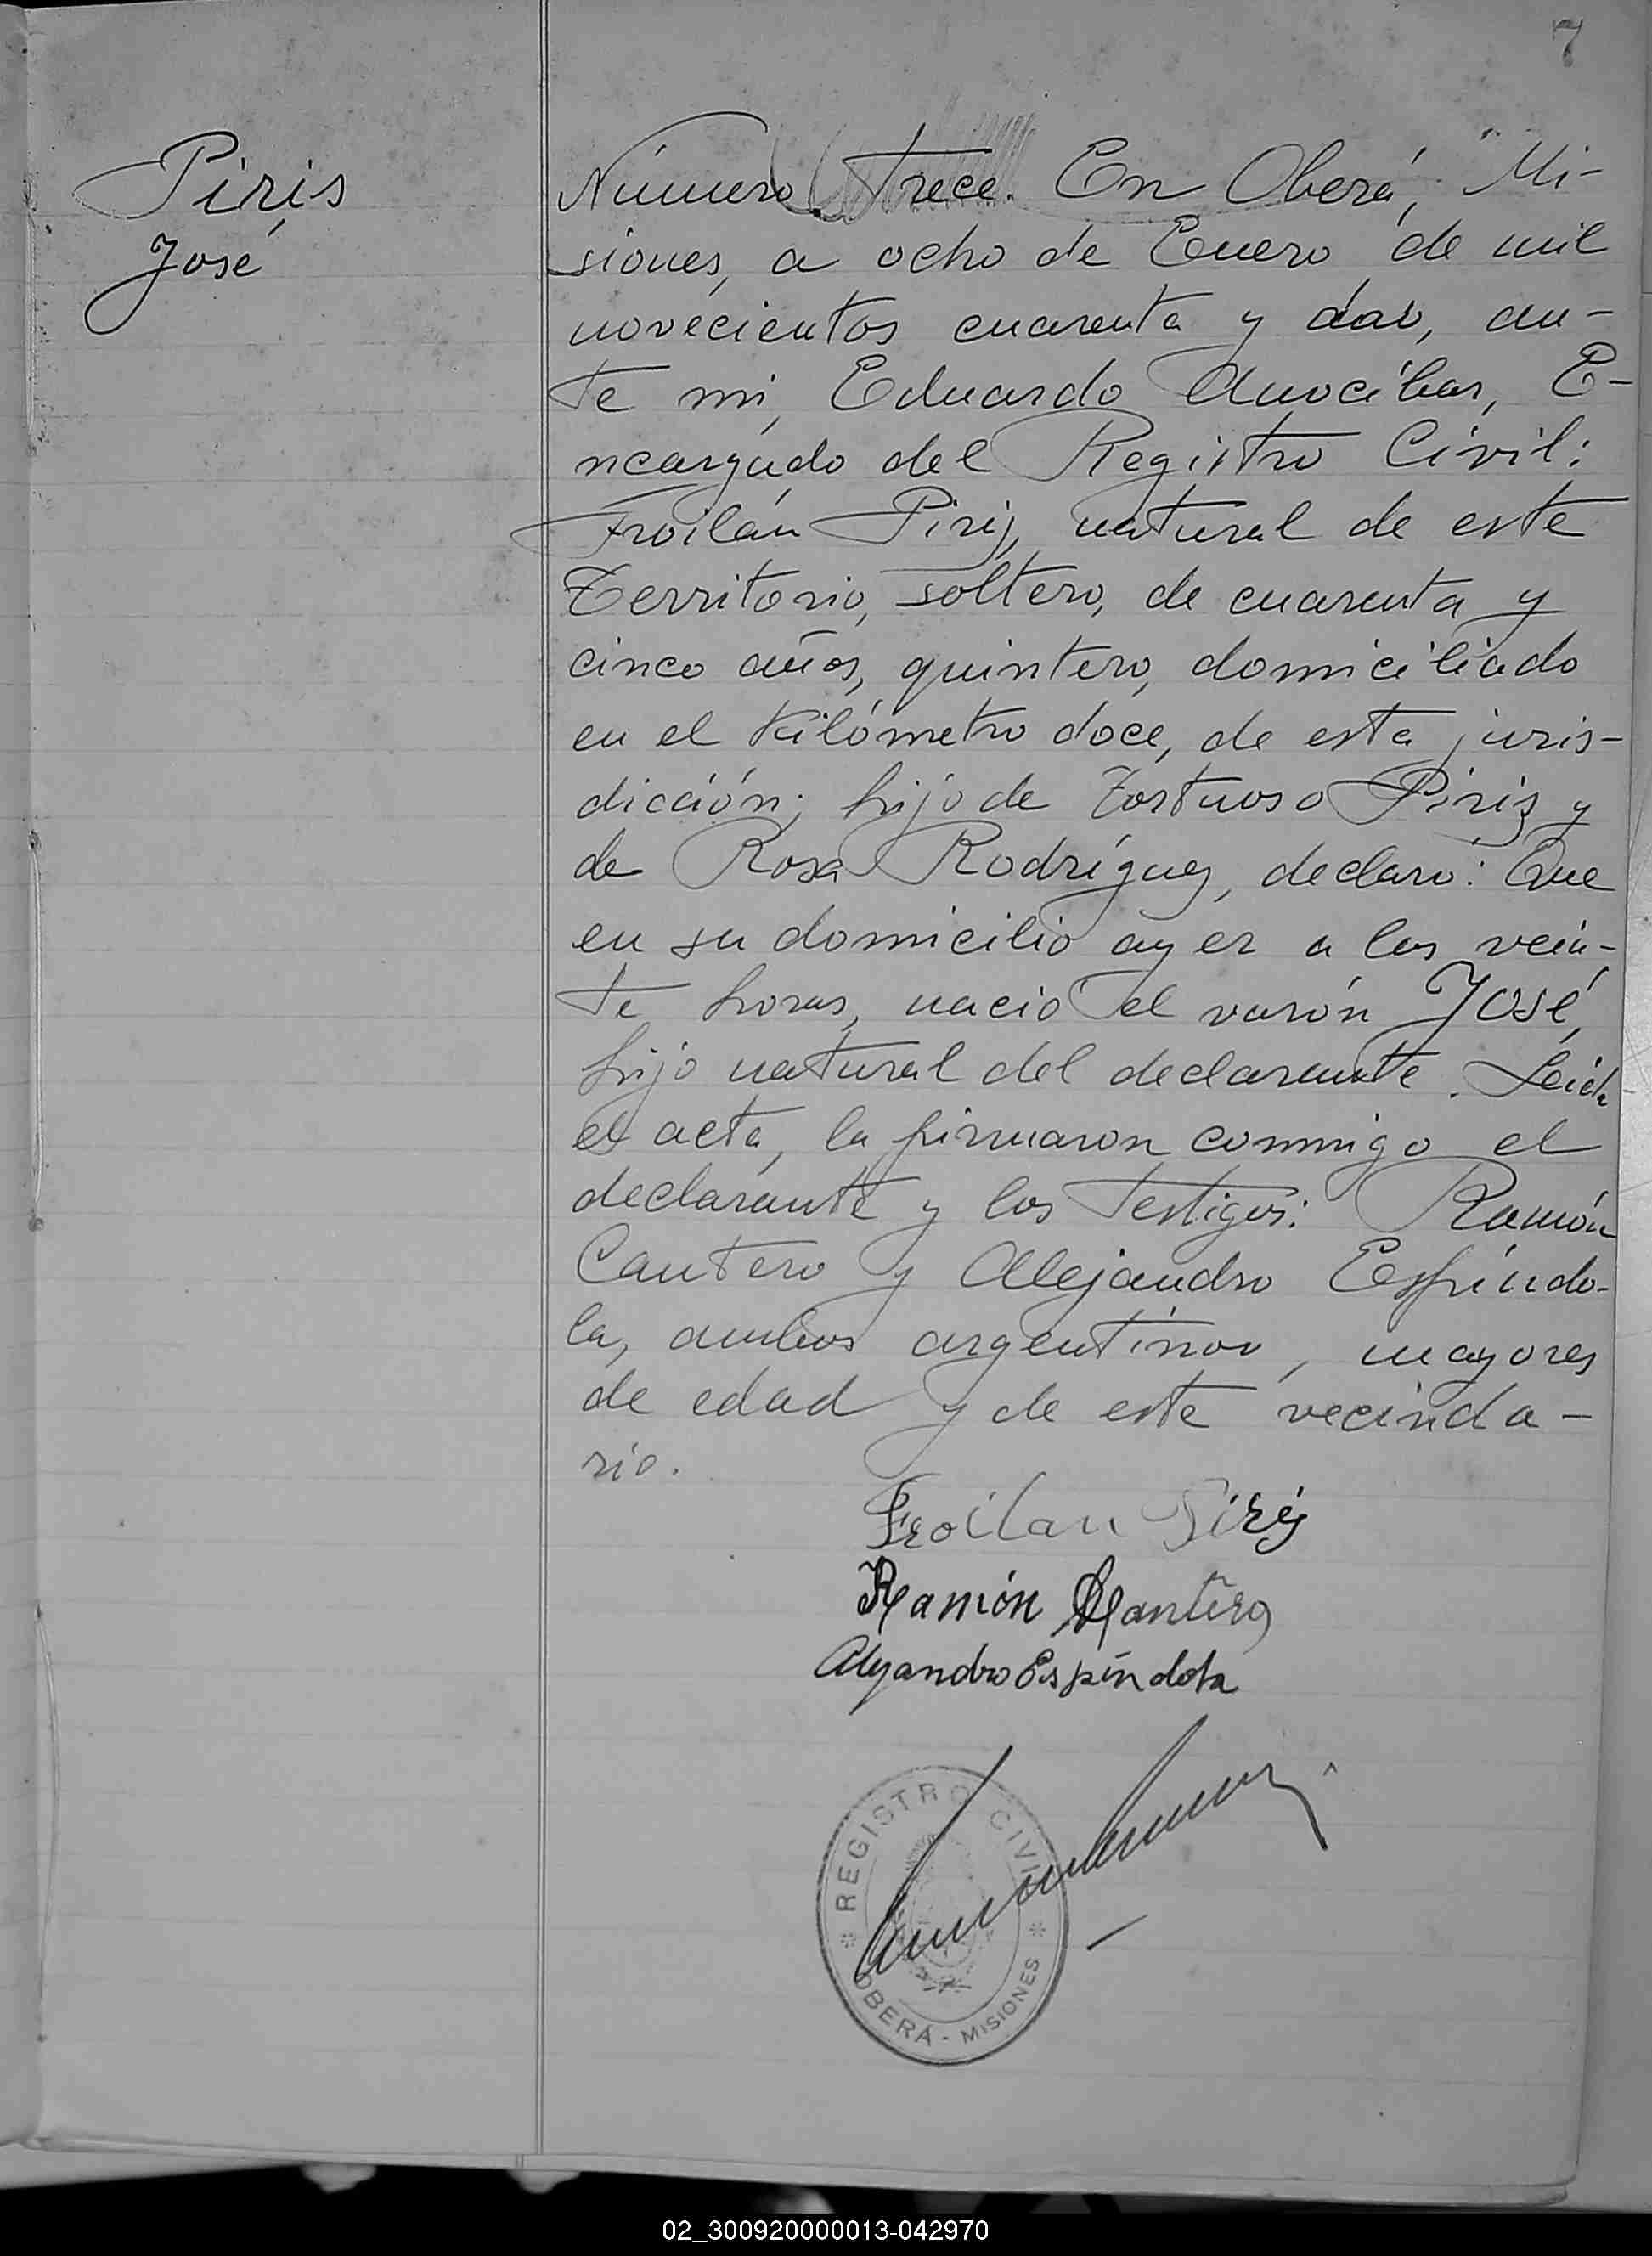 7
Piris
José
Número Trece. En Oberá, Mi-
siones, a ocho de Enero de mil
novecientos cuarenta y dos, an-
te mi, Eduardo Anocibar, E-
ncargado del Registro Civil:
Froilán Piris, natural de este
Territorio, soltero, de cuarenta y
cinco años, quintero, domiciliado
en el kilómetro doce, de esta juris-
dicción; hijo de Tortuoso Piris y
de Rosa Rodríguez, declaró: Que
en su domicilio ayer a las vein-
te horas, nació el varón JOSÉ,
hijo natural del declarante. Leída
el acta, la firmaron conmigo el
declarante y los testigos: Ramón
Cantero y Alejandro Espíndo-
la, ambos argentinos, mayores
de edad y de este vecinda-
rio.
Froilan Piris
Ramón Cantero
Alejandro Espíndola
REGISTRO CIVIL
OBERÁ - MISIONES
02_300920000013-042970